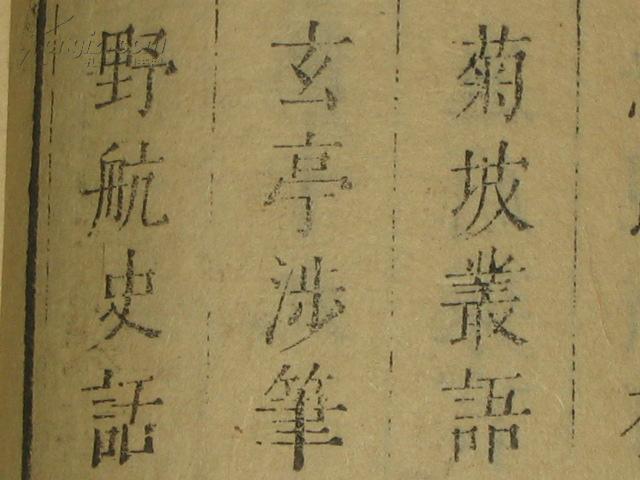 菊坡叢語
玄亭涉筆
野航史話